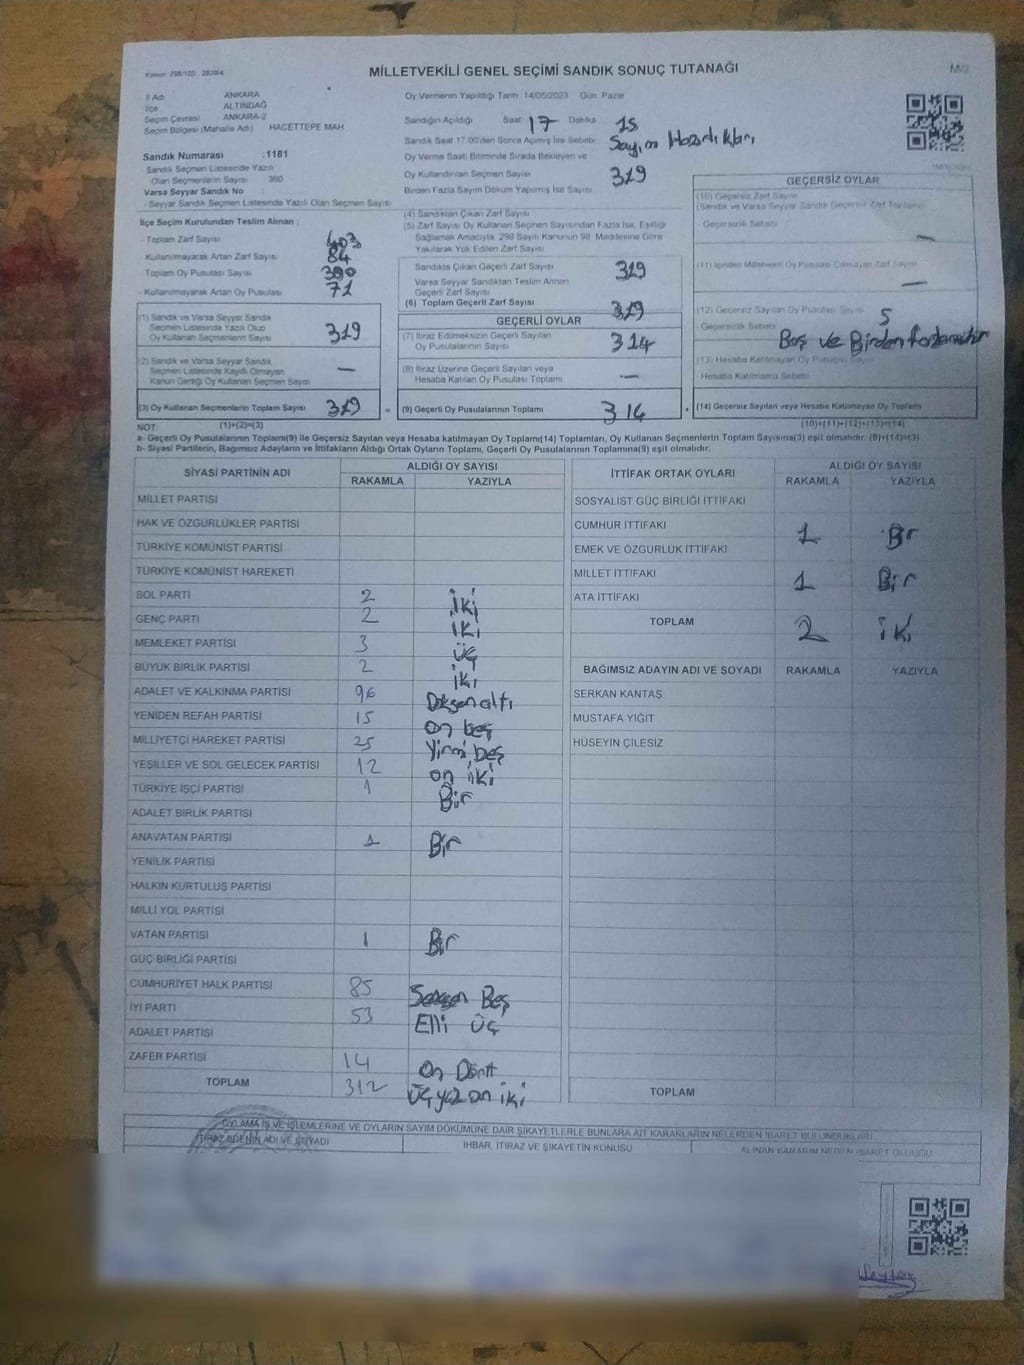 Kanun: 298/105 2839/4
MİLLETVEKİLİ GENEL SEÇİMİ SANDIK SONUÇ TUTANAĞI
İl Adı ANKARA
İlçe ALTINDAĞ
Seçim Çevresi ANKARA-2
Seçim Bölgesi (Mahalle Adı) HACETTEPE MAH
Sandık Numarası :1181
Sandık Seçmen Listesinde Yazılı
Olan Seçmenlerin Sayısı 360
Varsa Seyyar Sandık No
- Seyyar Sandık Seçmen Listesinde Yazılı Olan Seçmen Sayısı
Oy Vermenin Yapıldığı Tarih 14/05/2023 Gün Pazar
Sandığın Açıldığı Saat 17 Dakika 15
Sandık Saat 17.00'den Sonra Açılmış İse Sebebi: Sayım Hazırlıkları
Oy Verme Saati Bitiminde Sırada Bekleyen ve
Oy Kullandırılan Seçmen Sayısı 319
Birden Fazla Sayım Döküm Yapılmış İse Sayısı
İlçe Seçim Kurulundan Teslim Alınan ;
- Toplam Zarf Sayısı 403
- Kullanılmayarak Artan Zarf Sayısı 84
Toplam Oy Pusulası Sayısı 390
- Kullanılmayarak Artan Oy Pusulası 71
(1) Sandık ve Varsa Seyyar Sandık
Seçmen Listesinde Yazılı Olup
Oy Kullanan Seçmenlerin Sayısı 319
(2) Sandık ve Varsa Seyyar Sandık
Seçmen Listesinde Kayıtlı Olmayan
Kanun Gereği Oy Kullanan Seçmen Sayısı —
(3) Oy Kullanan Seçmenlerin Toplam Sayısı 319
(1)+(2)=(3)
(4) Sandıktan Çıkan Zarf Sayısı
(5) Zarf Sayısı Oy Kullanan Seçmen Sayısından Fazla İse, Eşitliği
Sağlamak Amacıyla, 298 Sayılı Kanunun 98. Maddesine Göre
Yakılarak Yok Edilen Zarf Sayısı
Sandıkta Çıkan Geçerli Zarf Sayısı 319
Varsa Seyyar Sandıktan Teslim Alınan
Geçerli Zarf Sayısı
(6) Toplam Geçerli Zarf Sayısı 319
GEÇERLİ OYLAR
(7) İtiraz Edilmeksizin Geçerli Sayılan
Oy Pusulalarının Sayısı 314
(8) İtiraz Üzerine Geçerli Sayılan veya
Hesaba Katılan Oy Pusulası Toplamı —
= (9) Geçerli Oy Pusulalarının Toplamı 314
GEÇERSİZ OYLAR
(10) Geçersiz Zarf Sayısı
(Sandık ve Varsa Seyyar Sandık Geçersiz Zarf Toplamı)
- Geçersizlik Sebebi —
(11) İçinden Milletvekili Oy Pusulası Çıkmayan Zarf Sayısı —
(12) Geçersiz Sayılan Oy Pusulası Sayısı 5
Geçersizlik Sebebi Boş ve Birden fazla
(13) Hesaba Katılmayan Oy Pusulası Sayısı
Hesaba Katılmama Sebebi
+ (14) Geçersiz Sayılan veya Hesaba Katılmayan Oy Toplamı
(10)+(11)+(12)+(13)=(14)
NOT:
a- Geçerli Oy Pusulalarının Toplamı(9) ile Geçersiz Sayılan veya Hesaba katılmayan Oy Toplamı(14) Toplamları, Oy Kullanan Seçmenlerin Toplam Sayısına(3) eşit olmalıdır. (9)+(14)=(3)
b- Siyasi Partilerin, Bağımsız Adayların ve İttifakların Aldığı Oyların Toplamı, Geçerli Oy Pusulalarının Toplamına(9) eşit olmalıdır.
SİYASİ PARTİNİN ADI ALDIĞI OY SAYISI
RAKAMLA YAZIYLA
MİLLET PARTİSİ
HAK VE ÖZGÜRLÜKLER PARTİSİ
TÜRKİYE KOMÜNİST PARTİSİ
TÜRKİYE KOMÜNİST HAREKETİ
SOL PARTİ 2 İki
GENÇ PARTİ 2 İki
MEMLEKET PARTİSİ 3 Üç
BÜYÜK BİRLİK PARTİSİ 2 İki
ADALET VE KALKINMA PARTİSİ 96 Doksan altı
YENİDEN REFAH PARTİSİ 15 on beş
MİLLİYETÇİ HAREKET PARTİSİ 25 Yirmi beş
YEŞİLLER VE SOL GELECEK PARTİSİ 12 on iki
TÜRKİYE İŞÇİ PARTİSİ 1 Bir
ADALET BİRLİK PARTİSİ
ANAVATAN PARTİSİ 1 Bir
YENİLİK PARTİSİ
HALKIN KURTULUŞ PARTİSİ
MİLLİ YOL PARTİSİ
VATAN PARTİSİ 1 Bir
GÜÇ BİRLİĞİ PARTİSİ
CUMHURİYET HALK PARTİSİ 85 Seksen Beş
İYİ PARTİ 53 Elli üç
ADALET PARTİSİ
ZAFER PARTİSİ 14 On Dört
TOPLAM 312 Üçyüz on iki
İTTİFAK ORTAK OYLARI ALDIĞI OY SAYISI
RAKAMLA YAZIYLA
SOSYALİST GÜÇ BİRLİĞİ İTTİFAKI
CUMHUR İTTİFAKI 1 Bir
EMEK VE ÖZGÜRLÜK İTTİFAKI
MİLLET İTTİFAKI 1 Bir
ATA İTTİFAKI
TOPLAM 2 iki
BAĞIMSIZ ADAYIN ADI VE SOYADI RAKAMLA YAZIYLA
SERKAN KANTAŞ
MUSTAFA YİĞİT
HÜSEYİN ÇİLESİZ
TOPLAM
OYLAMA İŞ VE İŞLEMLERİNE VE OYLARIN SAYIM DÖKÜMÜNE DAİR ŞİKAYETLERLE BUNLARA AİT KARARLARIN NELERDEN İBARET BULUNDUKLARI
İTİRAZ EDENİN ADI VE SOYADI İHBAR, İTİRAZ VE ŞİKAYETİN KONUSU ALINAN KARARIN NEDEN İBARET OLDUĞU